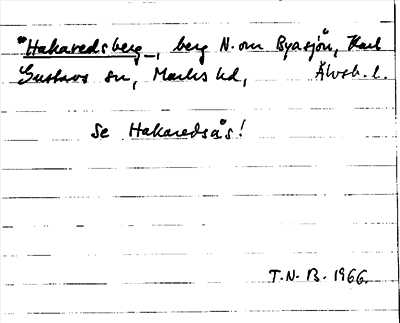 "Hakaredsberg, berg N. om Byasjön", Karl
Gustavs sn, Marks hd, Älvsb. l.
Se Hakaredsås!
T.N.B. 1966.